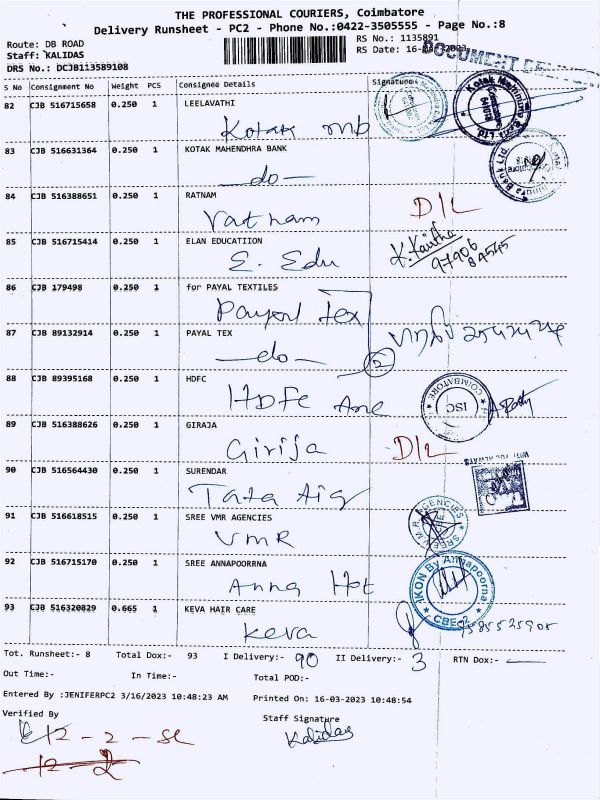 THE PROFESSIONAL COURIERS, Coimbatore
Delivery Runsheet - PC2 - Phone No.:0422-3505555 - Page No.:8
Route: DB ROAD
RS No.: 1135891
Staff: KALIDAS
RS Date: 16-03-2023
DRS No.: DCJB113589108
DOCUMENT
S No Consignment No Weight PCS Consignee Details Signature
82 CJB 516715658 0.250 1 LEELAVATHI
Kotak mb
83 CJB 516631364 0.250 1 KOTAK MAHENDHRA BANK
-do-
84 CJB 516388651 0.250 1 RATNAM
Ratnam D/L
85 CJB 516715414 0.250 1 ELAN EDUCATIION
E. Edu
K. Kavitha
97906
84545
86 CJB 179498 0.250 1 for PAYAL TEXTILES
Payal Tex
87 CJB 89132914 0.250 1 PAYAL TEX
-do- 2
88 CJB 89395168 0.250 1 HDFC
HDFC
COIMBATORE
ISC
89 CJB 516388626 0.250 1 GIRAJA
Girija D/L
90 CJB 516564430 0.250 1 SURENDAR
Tata Aig
91 CJB 516618515 0.250 1 SREE VMR AGENCIES
VMR
92 CJB 516715170 0.250 1 SREE ANNAPOORRNA
Anna Hot
IKON By Annapoorna
CBE-2
93 CJB 516320829 0.665 1 KEVA HAIR CARE
Keva 9585525905
Tot. Runsheet:- 8 Total Dox:- 93 I Delivery:- 90 II Delivery:- 3 RTN Dox:-
Out Time:- In Time:- Total POD:-
Entered By :JENIFERPC2 3/16/2023 10:48:23 AM Printed On: 16-03-2023 10:48:54
Verified By Staff Signature
Kalidas
12 - 2 - SL
12 - 2